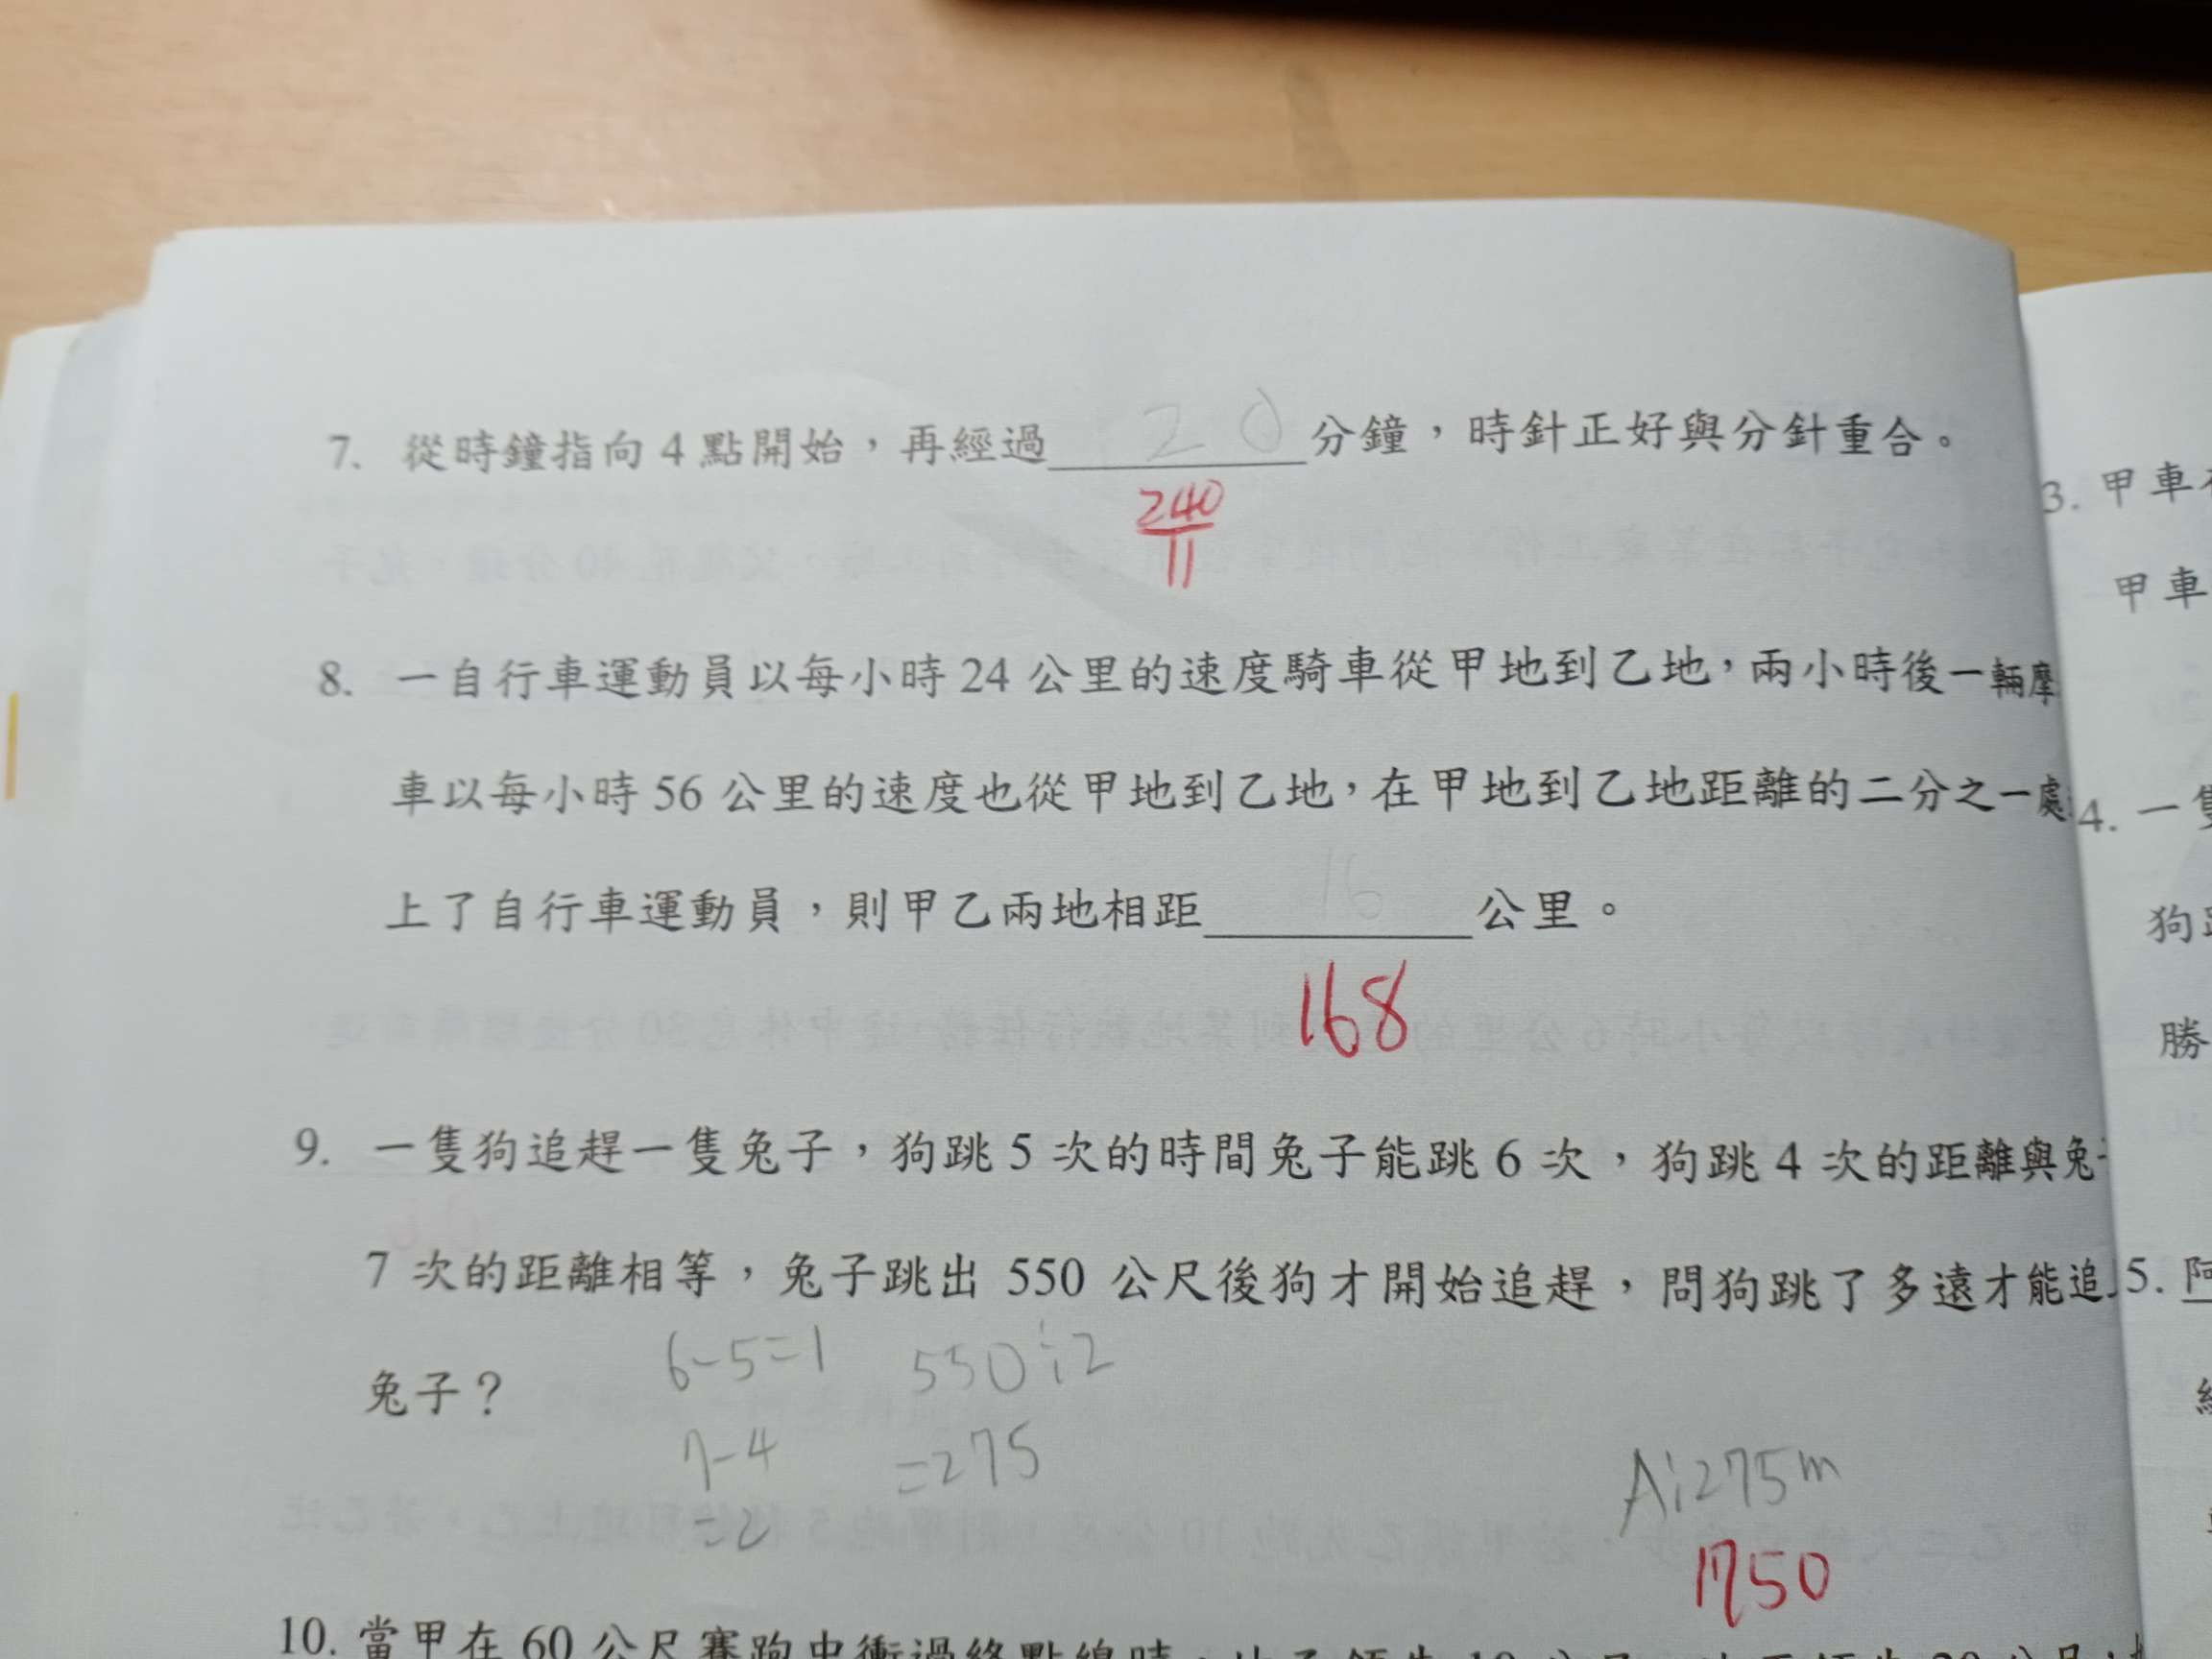 7. 從時鐘指向 4 點開始，再經過 20 分鐘，時針正好與分針重合。
240
11
8. 一自行車運動員以每小時 24 公里的速度騎車從甲地到乙地，兩小時後一輛摩
車以每小時 56 公里的速度也從甲地到乙地，在甲地到乙地距離的二分之一處
上了自行車運動員，則甲乙兩地相距 16 公里。
168
9. 一隻狗追趕一隻兔子，狗跳 5 次的時間兔子能跳 6 次，狗跳 4 次的距離與兔
7 次的距離相等，兔子跳出 550 公尺後狗才開始追趕，問狗跳了多遠才能追
兔子？
6-5=1 550÷2
7-4 =275
=2
A:275m
1750
10. 當甲在 60 公尺賽跑中衝過終點線時
3. 甲車
甲車
4. 一隻
狗
勝
5. 阿